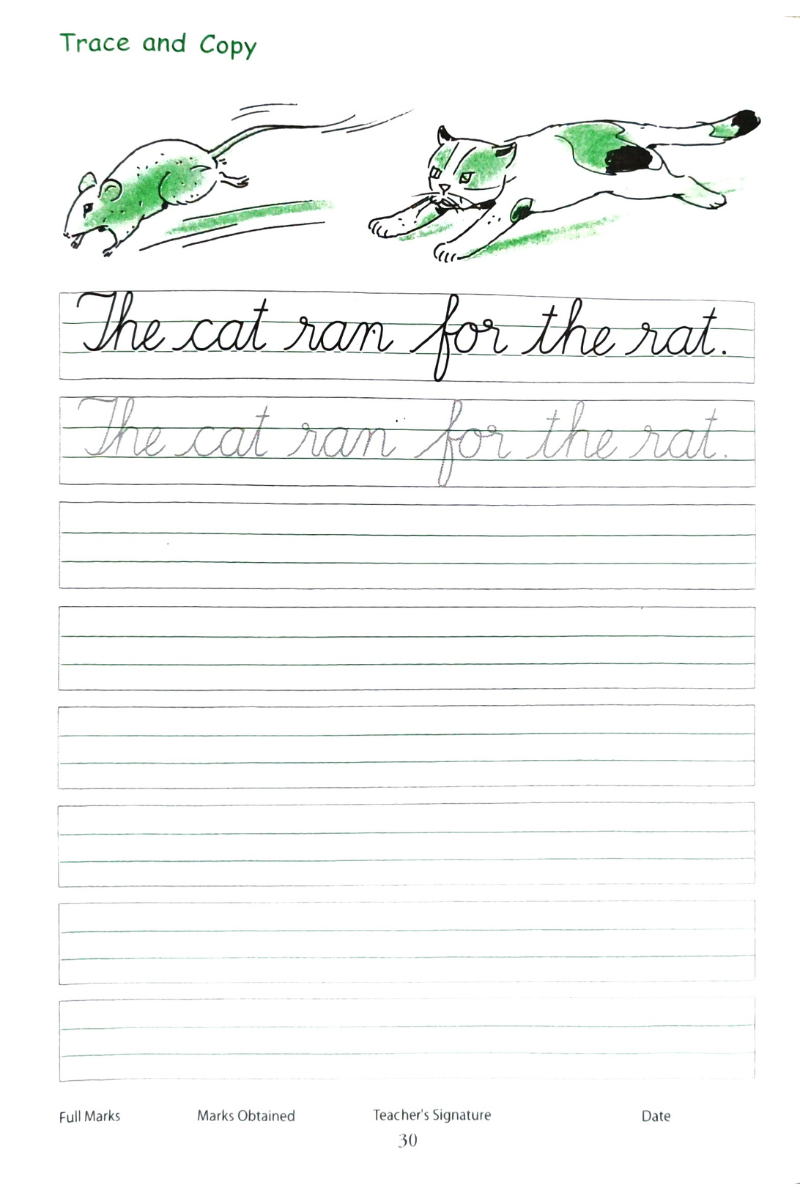 Trace and Copy
The cat ran for the rat.
The cat ran for the rat.
Full Marks Marks Obtained Teacher's Signature Date
30